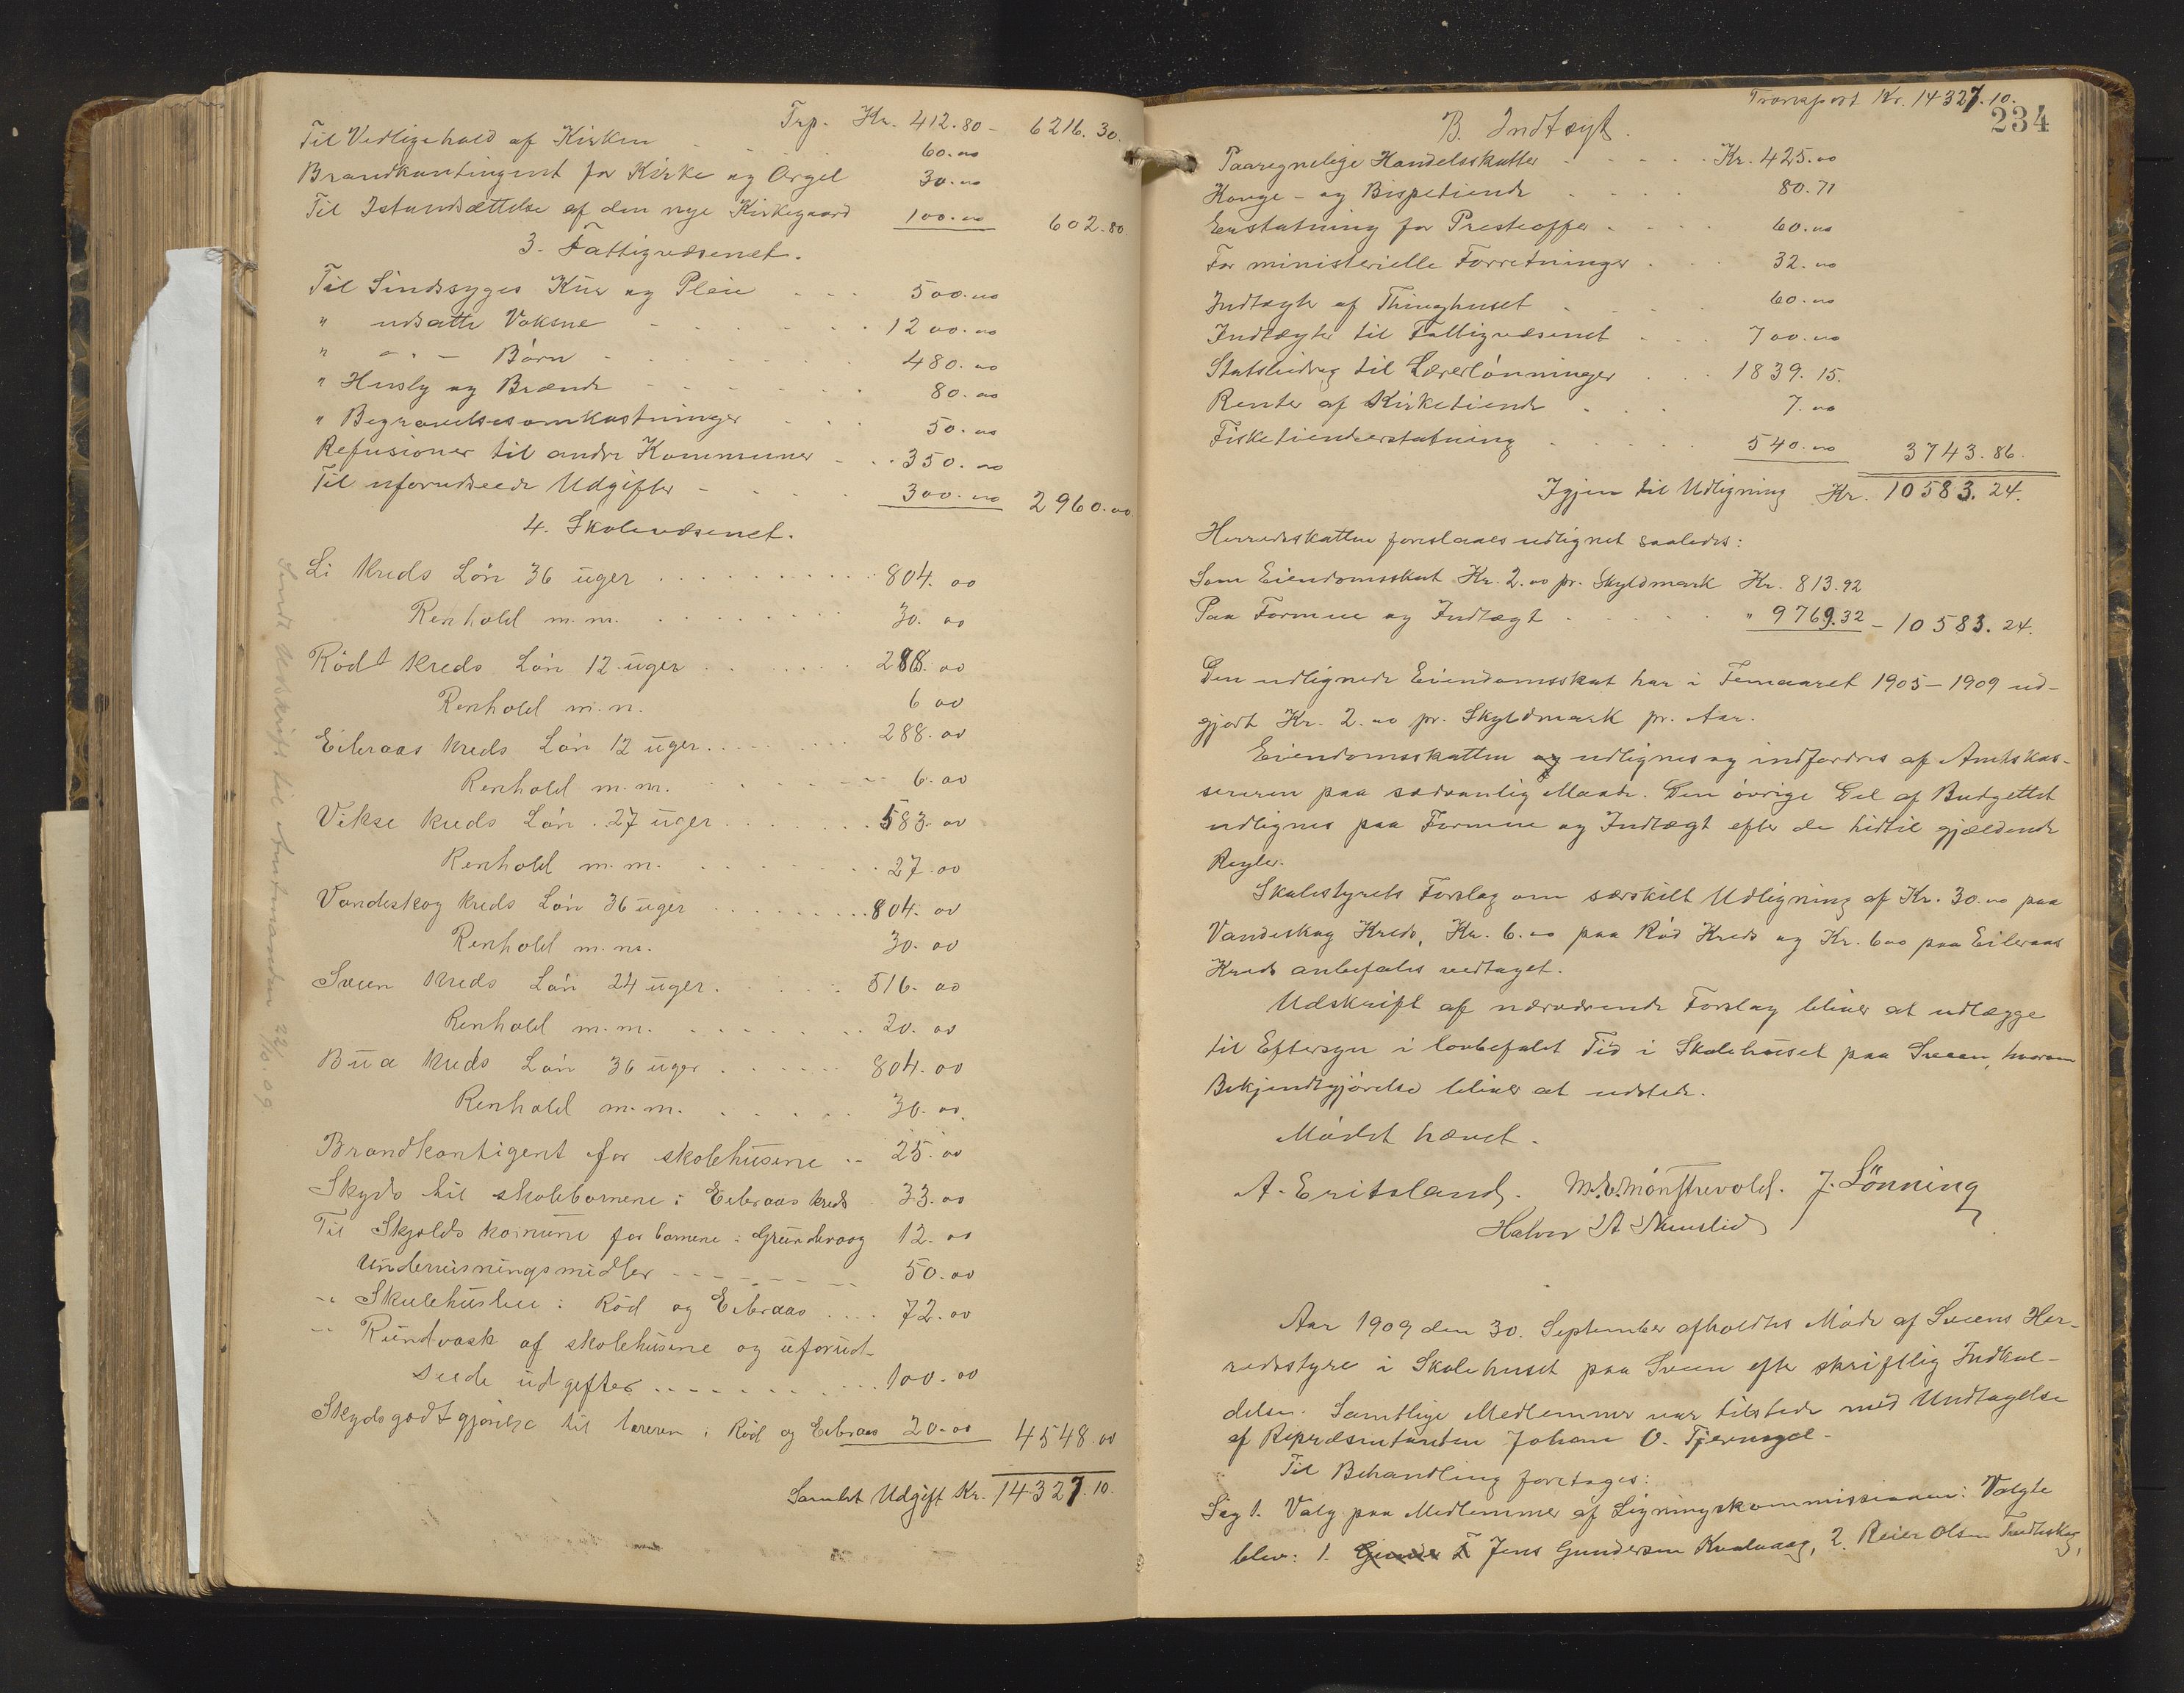 Trp. Kr. 412.80 - 6216.30.
Til Vedligehold af Kirken . . . 60.00
Brandkontingent for Kirke og Orgel 30.00
Til Istandsættelse af den nye Kirkegaard 100.00 602.80.
3. Fattigvæsenet.
Til Sindssyges Kur og Pleie - - - 500.00
" udsatte Voksne - - - - - 1200.00
" - " - Børn - - - - - 480.00
" Husly og Brænde - - - - - 80.00
" Begravelsesomkostninger - - - 50.00
Refusioner til andre Kommuner - - 350.00
Til uforudseede Udgifter - - - - 300.00 2960.00
4. Skolevæsenet.
Li Kreds Løn 36 uger . . . . . 804.00
Renhold m.m. . . . . . 30.00
Rød Kreds Løn 12 uger . . . . 288.00
Renhold m.m. 6 00
Eileraas Kreds Løn 12 uger . . . . 288.00
Renhold m.m. . . . . 6.00
Vikse Kreds Løn . 27 uger . . . . 583.00
Renhold m.m. . . . . 27.00
Vandeskog Kreds Løn 36 uger . . . . 804.00
Renhold m.m. 30.00
Sveen Kreds Løn 24 uger . . . . 516.00
Renhold m.m. . . . . 20.00
Bua Kreds Løn 36 uger . . . . 804.00
Renhold m.m. . . . . 30.00.
Brandkontigent for skolehusene .. 25.00
Skyds til skolebørnene i Eileraas kreds 33.00
Til Skjolds komune for børnene i Grindevaag 12.00
Undervisningsmidler - - - - - 50.00
-"- Skulehusleie i Rød og Eileraas . . . . 72.00
-"- Rundvask af skolehusene og uforud-
seede udgifter . . . . . . . 100.00
Skydsgodtgjørelse til læreren i Rød og Eileraas 20.00 4548.00
Samlet Udgift Kr. 14327.10.
Sendt Udskrift til Amtmanden 22/10.09
Transport Kr. 14327.10.
234
B. Indtægt.
Paaregnelige Handelsskatter . . . . Kr. 425.00
Konge- og Bispetiende . . . . 80.71
Erstatning for Presteoffer . . . . 60.00
For ministerielle Forretninger . . . 32.00
Indtægt af Thinghuset . . . . 60.00
Indtægter til Fattigvæsenet . . . 700.00
Statsbidrag til Lærerlønninger . . . 1839.15.
Renter af Kirketiende . . . 7.00
Fisketiendeerstatning . . . . . 540.00 3743.86.
Igjen til Udligning Kr. 10583.24.
Herredsskatten foreslaaes udlignet saaledes:
Som Eiendomsskat Kr. 2.00 pr. Skyldmark Kr. 813.92
Paa Formue og Indtægt . . . . . " 9769.32 - 10583.24.
Den udlignede Eiendomsskat har i Femaaret 1905-1909 ud-
gjort Kr. 2.00 pr. Skyldmark pr. Aar.
Eiendomsskatten og udlignes og indfordres af Amtskas-
sereren paa sædvanlig Maade. Den øvrige Del af Budgettet
udlignes paa Formue og Indtægt efter de hidtil gjældende
Regler.
Skolestyrets Forslag om særskilt Udligning af Kr. 30.00 paa
Vandeskog Kreds, Kr. 6.00 paa Rød Kreds og Kr. 6.00 paa Eileraas
Kreds anbefales vedtaget.
Udskrift af nærværende Forslag bliver at udlægge
til Eftersyn i lovbefalet Tid i Skolehuset paa Sveen, hvorom
Bekjendtgjørelse bliver at udstede.
Mødet hævet.
A. Eritsland. M. O. Mønstrevold. J. Lönning
Halvor A
Aar 1909 den 30. September afholdtes Møde af Sveens Her-
redsstyre i Skolehuset paa Sveen efter skriftlig Indkal-
delse. Samtlige Medlemmer var tilstede med Undtagelse
af Repræsentanten Johan O. Tjernagel.
Til Behandling foretages:
Sag 1. Valg paa Medlemmer af Ligningskommissionen: Valgte
blev: 1. Jens Gundersen Kvalvaag, 2. Reier Olsen